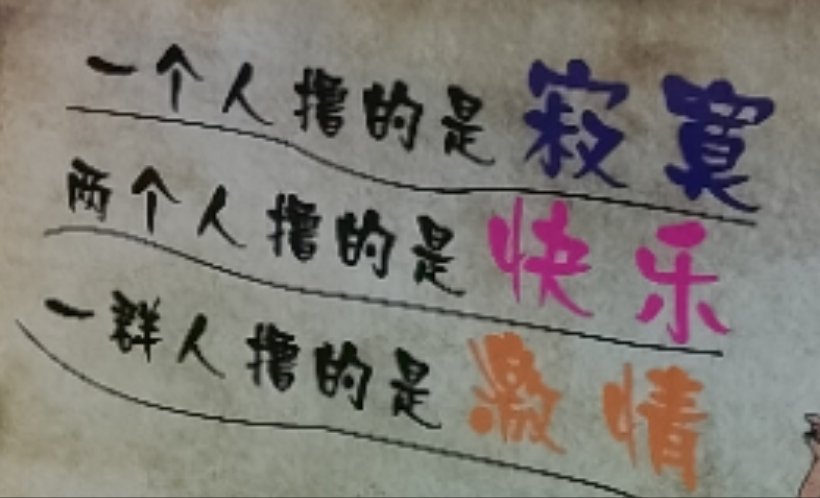 一个人撸的是寂寞
两个人撸的是快乐
一群人撸的是激情